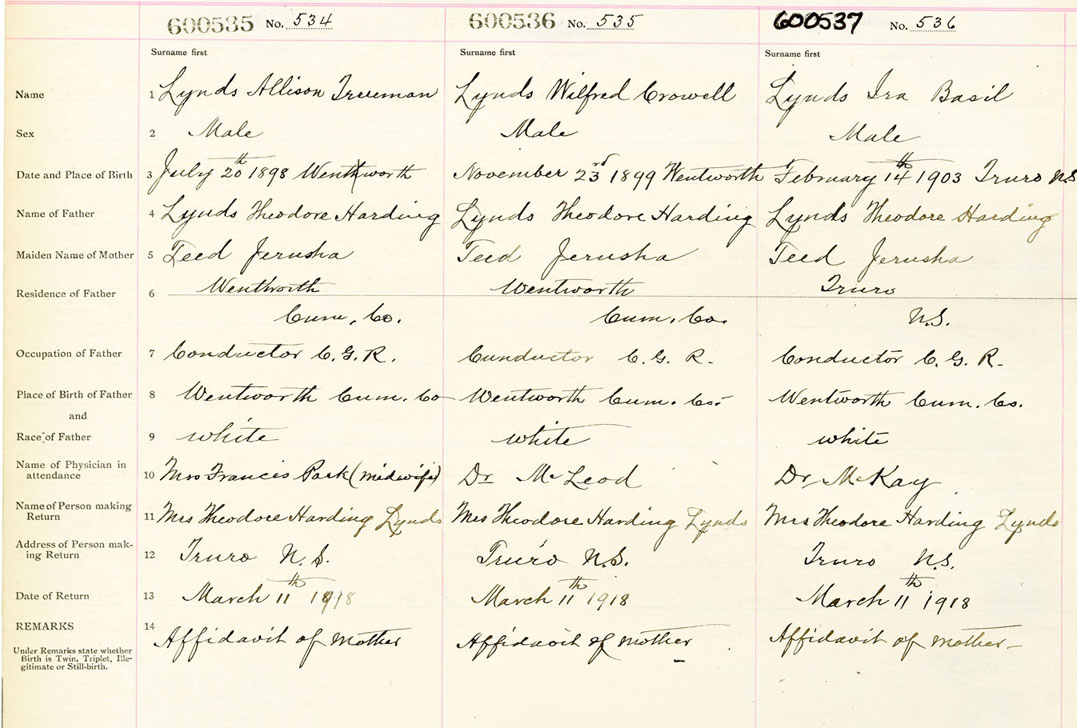 600535 No. 534 600536 No. 535 600537 No. 536
Surname first Surname first Surname first
Name 1 Lynds Allison Freeman Lynds Wilfred Crowell Lynds Ira Basil
Sex 2 Male Male Male
Date and Place of Birth 3 July 20th 1898 Wentworth November 23rd 1899 Wentworth February 14th 1903 Truro N.S
Name of Father 4 Lynds Theodore Harding Lynds Theodore Harding Lynds Theodore Harding
Maiden Name of Mother 5 Teed Jerusha Teed Jerusha Teed Jerusha
Residence of Father 6 Wentworth Wentworth Truro
Cum. Co. Cum. Co. N.S.
Occupation of Father 7 Conductor C.G.R. Conductor C.G.R. Conductor C.G.R.
Place of Birth of Father 8 Wentworth Cum. Co Wentworth Cum. Co. Wentworth Cum. Co.
and
Race of Father 9 white white white
Name of Physician in
attendance 10 Mrs Francis Park (midwife) Dr McLeod Dr McKay
Name of Person making
Return 11 Mrs Theodore Harding Lynds Mrs Theodore Harding Lynds Mrs Theodore Harding Lynds
Address of Person mak-
ing Return 12 Truro N.S. Truro N.S. Truro N.S.
Date of Return 13 March 11th 1918 March 11th 1918 March 11th 1918
REMARKS 14 Affidavit of Mother Affidavit of mother Affidavit of mother
Under Remarks state whether
Birth is Twin, Triplet, Ille-
gitimate or Still-birth.